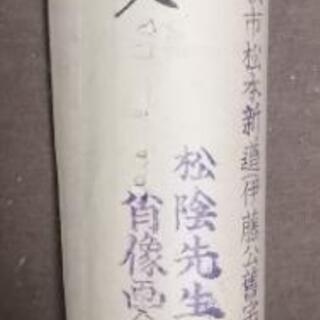 市松本新道伊藤公舊宅
松陰先生
肖像画